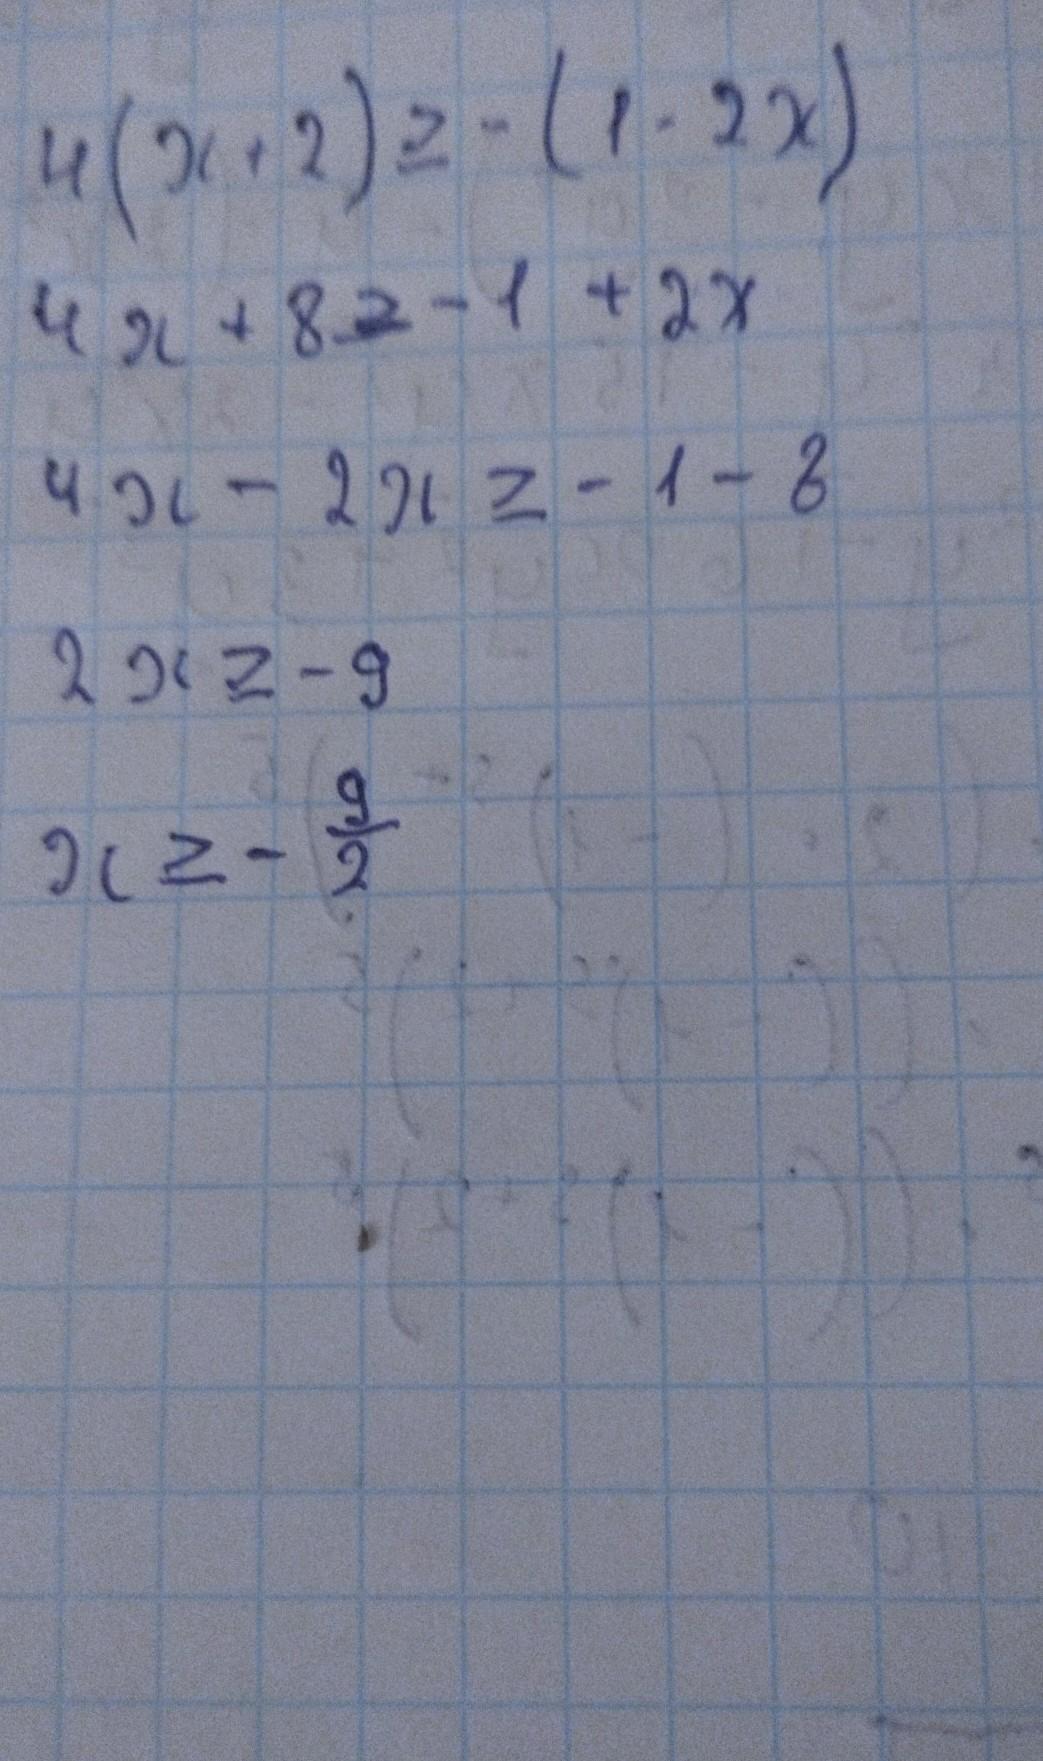 4(x+2) ≥ -(1-2x)
4x + 8 ≥ -1 + 2x
4x - 2x ≥ -1 - 8
2x ≥ -9
x ≥ - 9/2